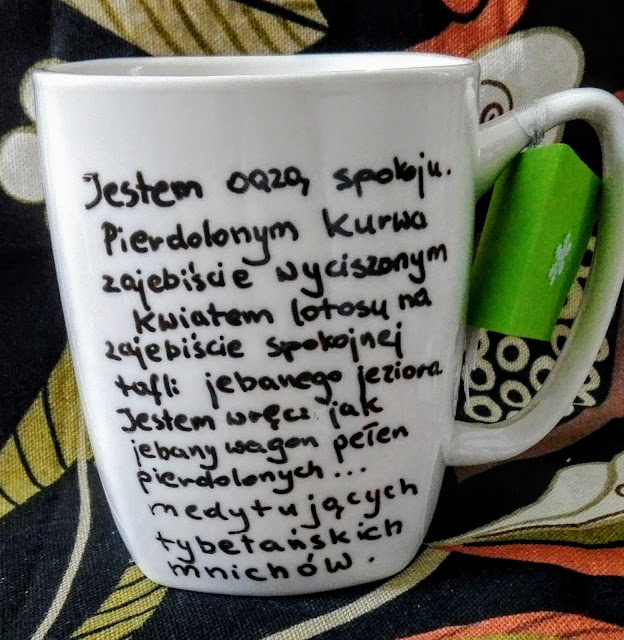 Jestem oazą spokoju.
Pierdolonym kurwa
zajebiście wyciszonym
kwiatem lotosu na
zajebiście spokojnej
tafli jebanego jeziora
Jestem wręcz jak
jebany wagon pełen
pierdolonych...
medytujących
tybetańskich
mnichów.